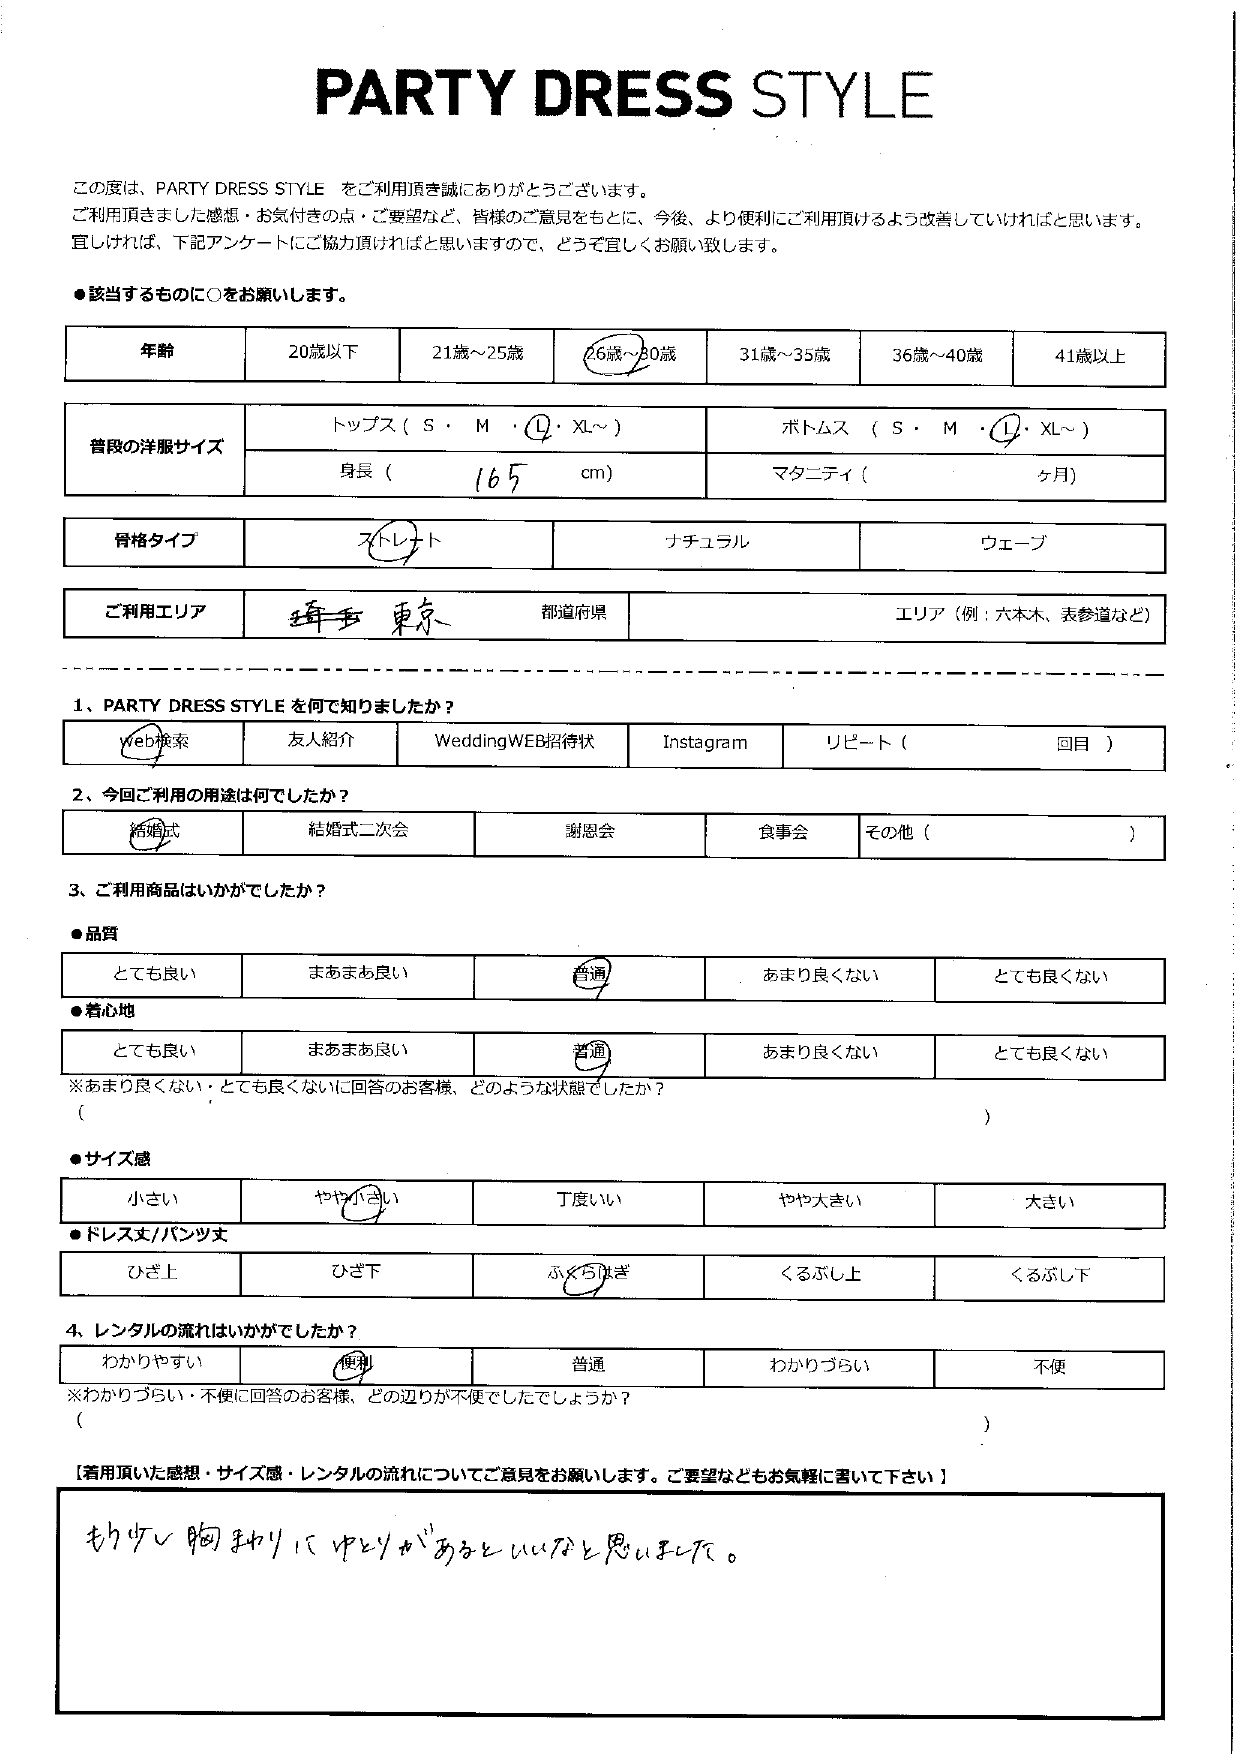 PARTY DRESS STYLE
この度は、PARTY DRESS STYLE をご利用頂き誠にありがとうございます。
ご利用頂きました感想・お気付きの点・ご要望など、皆様のご意見をもとに、今後、より便利にご利用頂けるよう改善していければと思います。
宜しければ、下記アンケートにご協力頂ければと思いますので、どうぞ宜しくお願い致します。
●該当するものに○をお願いします。
年齢 20歳以下 21歳～25歳 26歳～30歳 31歳～35歳 36歳～40歳 41歳以上
普段の洋服サイズ トップス ( S ・ M ・ L ・ XL～ ) ボトムス ( S ・ M ・ L ・ XL～ )
身長 ( 165 cm) マタニティ ( ヶ月)
骨格タイプ ストレート ナチュラル ウェーブ
ご利用エリア 埼玉 東京 都道府県 エリア（例：六本木、表参道など）
1、PARTY DRESS STYLE を何で知りましたか？
Web検索 友人紹介 WeddingWEB招待状 Instagram リピート ( 回目 )
2、今回ご利用の用途は何でしたか？
結婚式 結婚式二次会 謝恩会 食事会 その他 ( )
3、ご利用商品はいかがでしたか？
●品質
とても良い まあまあ良い 普通 あまり良くない とても良くない
●着心地
とても良い まあまあ良い 普通 あまり良くない とても良くない
※あまり良くない・とても良くないに回答のお客様、どのような状態でしたか？
( )
●サイズ感
小さい やや小さい 丁度いい やや大きい 大きい
●ドレス丈/パンツ丈
ひざ上 ひざ下 ふくらはぎ くるぶし上 くるぶし下
4、レンタルの流れはいかがでしたか？
わかりやすい 便利 普通 わかりづらい 不便
※わかりづらい・不便に回答のお客様、どの辺りが不便でしたでしょうか？
( )
【着用頂いた感想・サイズ感・レンタルの流れについてご意見をお願いします。ご要望などもお気軽に書いて下さい】
もう少し胸まわりにゆとりがあるといいなと思いました。